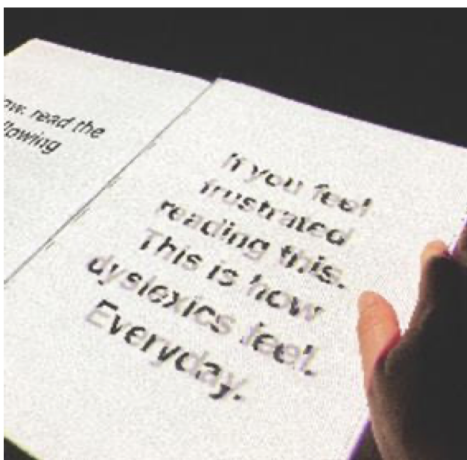 ow, read the
llowing
If you feel
frustrated
reading this.
This is how
dyslexics feel.
Everyday.